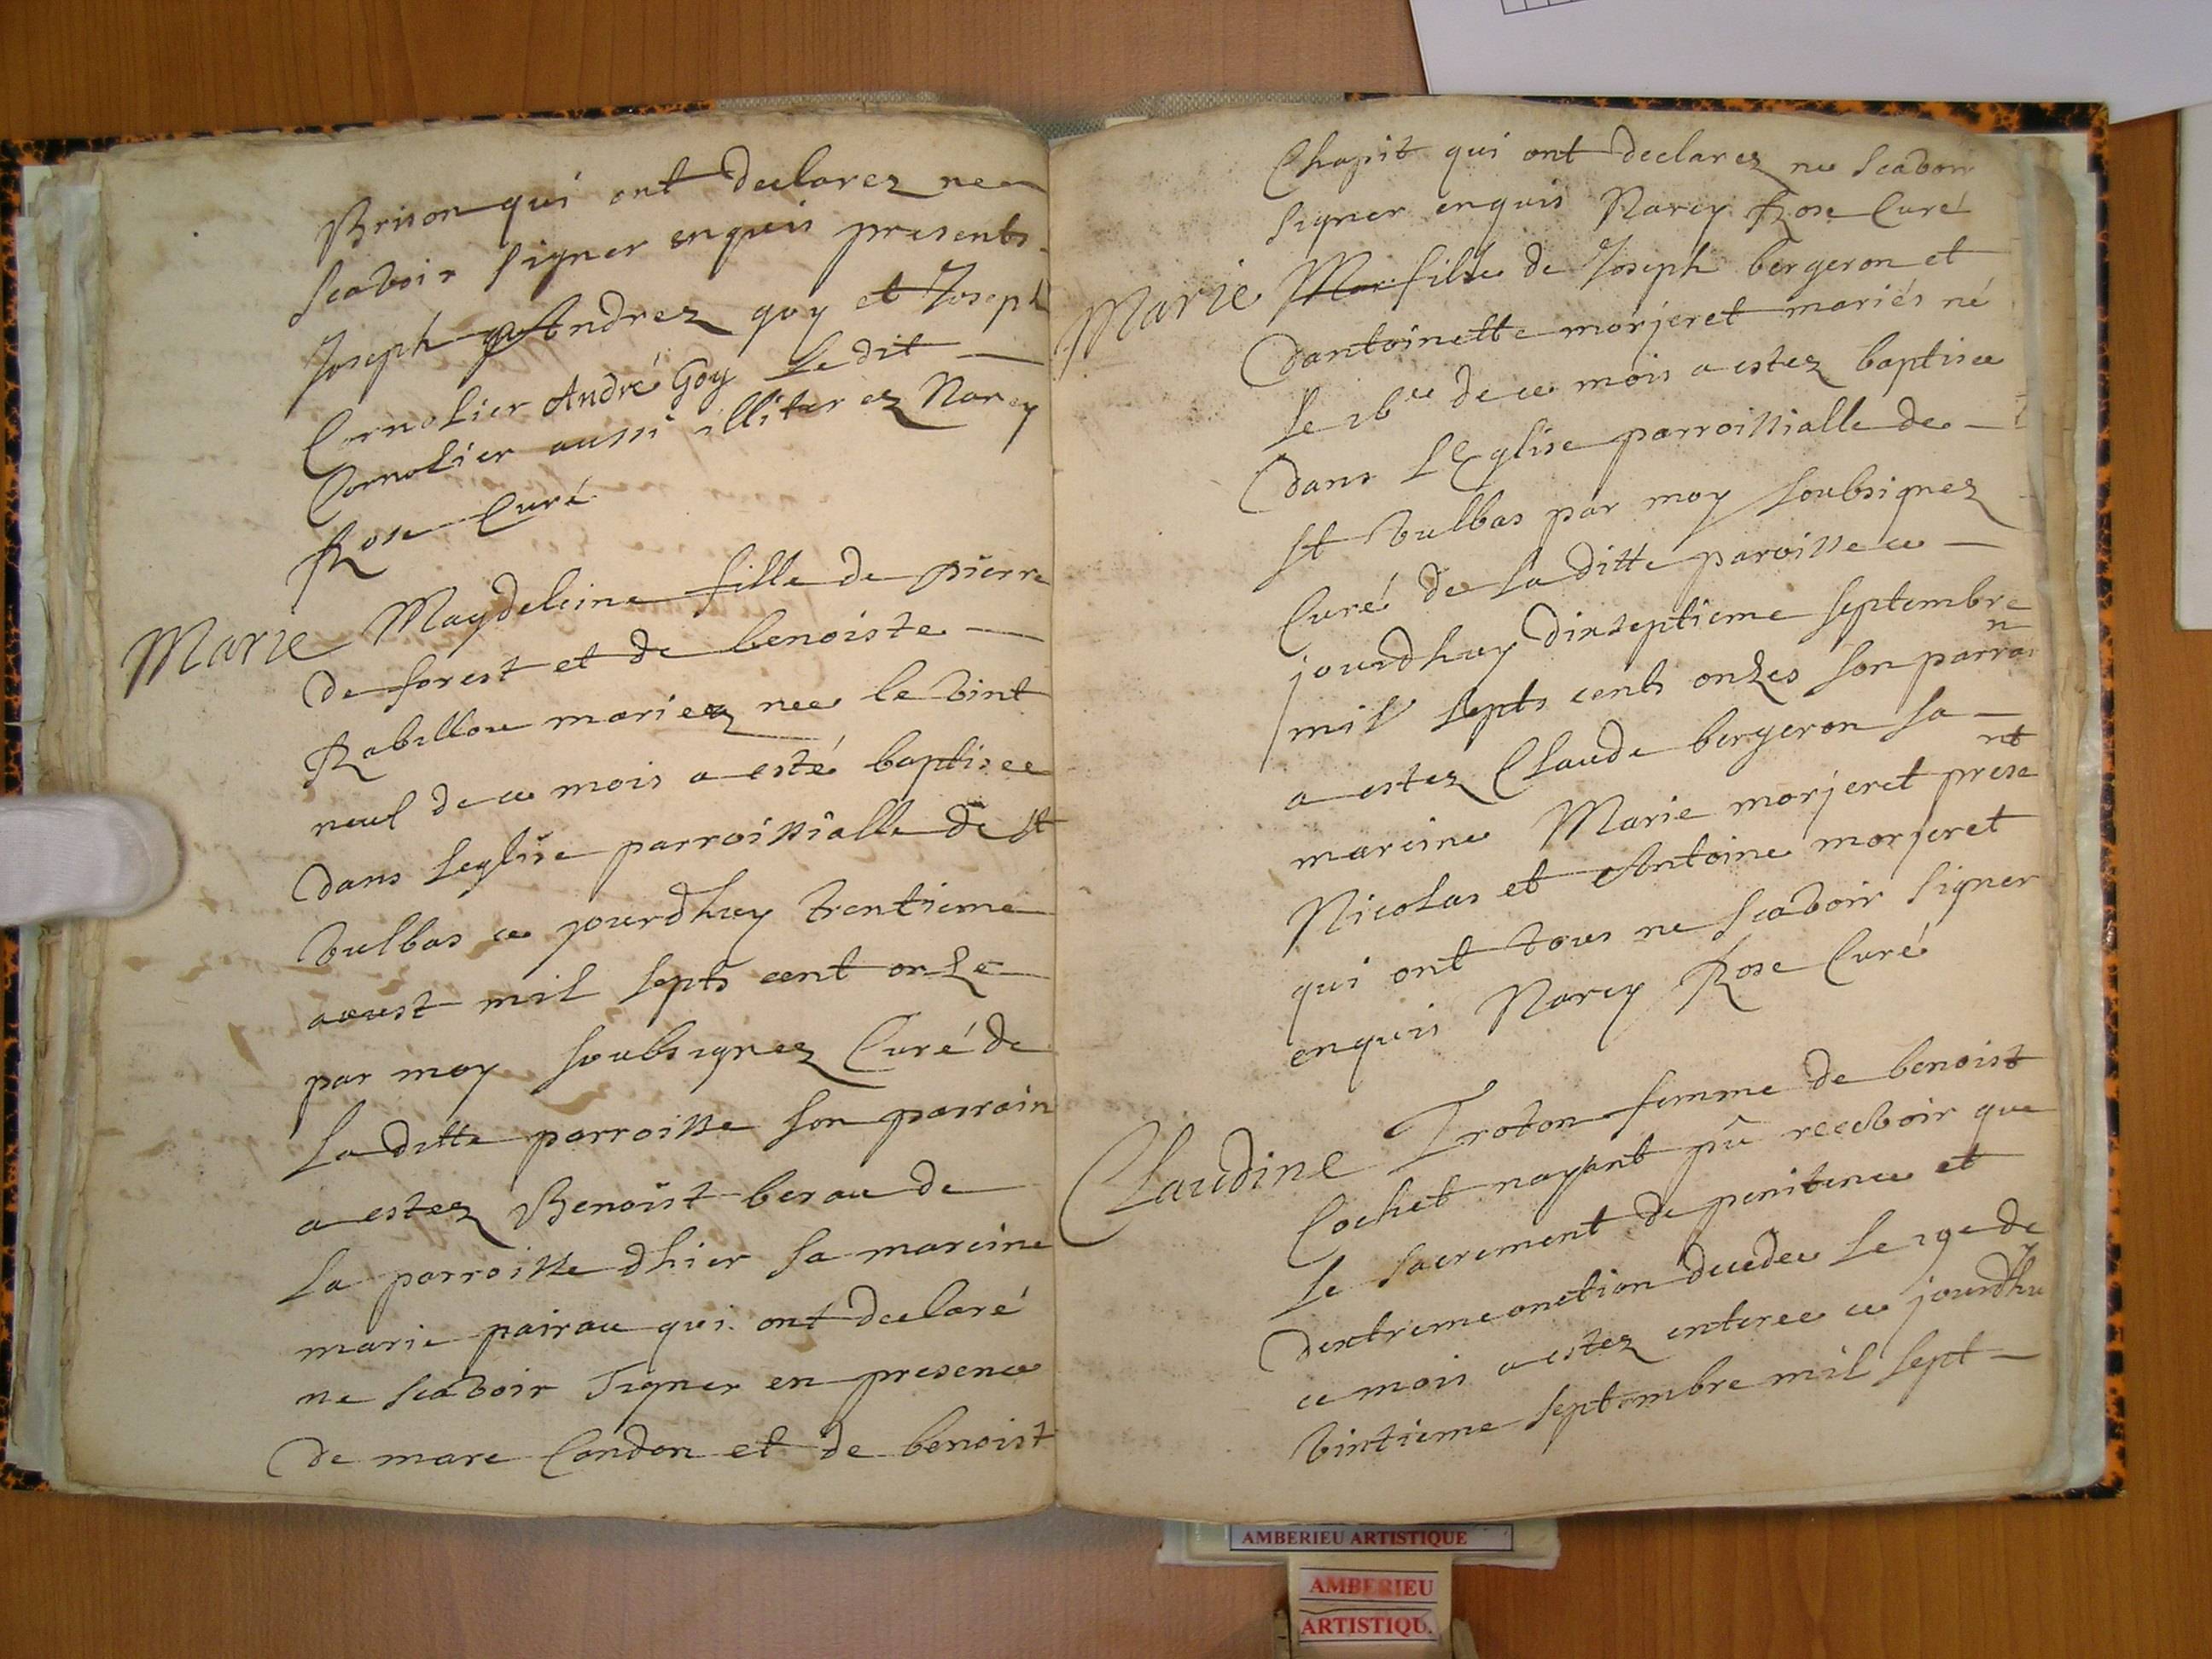 Brison qui ont declarez nee
scavoir signer enquis presents
Joseph Andrez goy et Joseph
Cornolier André Goy Ledit
Cornolier aussi illiterez Narcy
Rose Curé
Marie Magdeleine fille de pierre
de forest et de benoiste
Rabillou mariez nee le vint
neuf de ce mois a esté baptisee
dans leglise parroissialle de st
vulbas ce jourdhuy trentieme
aoust mil septs cent onze
par moy soubsignez Curé de
La ditte parroisse son parrain
a estez Benoist berau de
La parroisse dhier sa mareine
marie pairau qui ont declaré
ne scavoir signer en presence
de marc Condon et de benoist
Chapit qui ont declarez ne scavoir
signer enquis Narcy Rose Curé
Marie fille de Joseph bergeron et
dantoinette morjeret mariés né
le 16e de ce mois a estez baptisee
dans LEglise parroissialle de
st vulbas par moy soubsignez
Curé de la ditte paroisse ce
jourdhuy dixseptieme septembre
mil septs cents onzes son parrain
a estez Claude bergeron sa
mareine Marie morjeret present
Nicolas et Antoine morjeret
qui ont tous ne scavoir signer
enquis Narcy Rose Curé
Claudine Troton femme de benoist
Cochet nayant pû recevoir que
le sacrement de penitence et
dextremeonction decedee le 19e de
ce mois a estez enteree ce jourdhu
vintieme septembre mil sept
AMBERIEU ARTISTIQUE
AMBERIEU
ARTISTIQU.